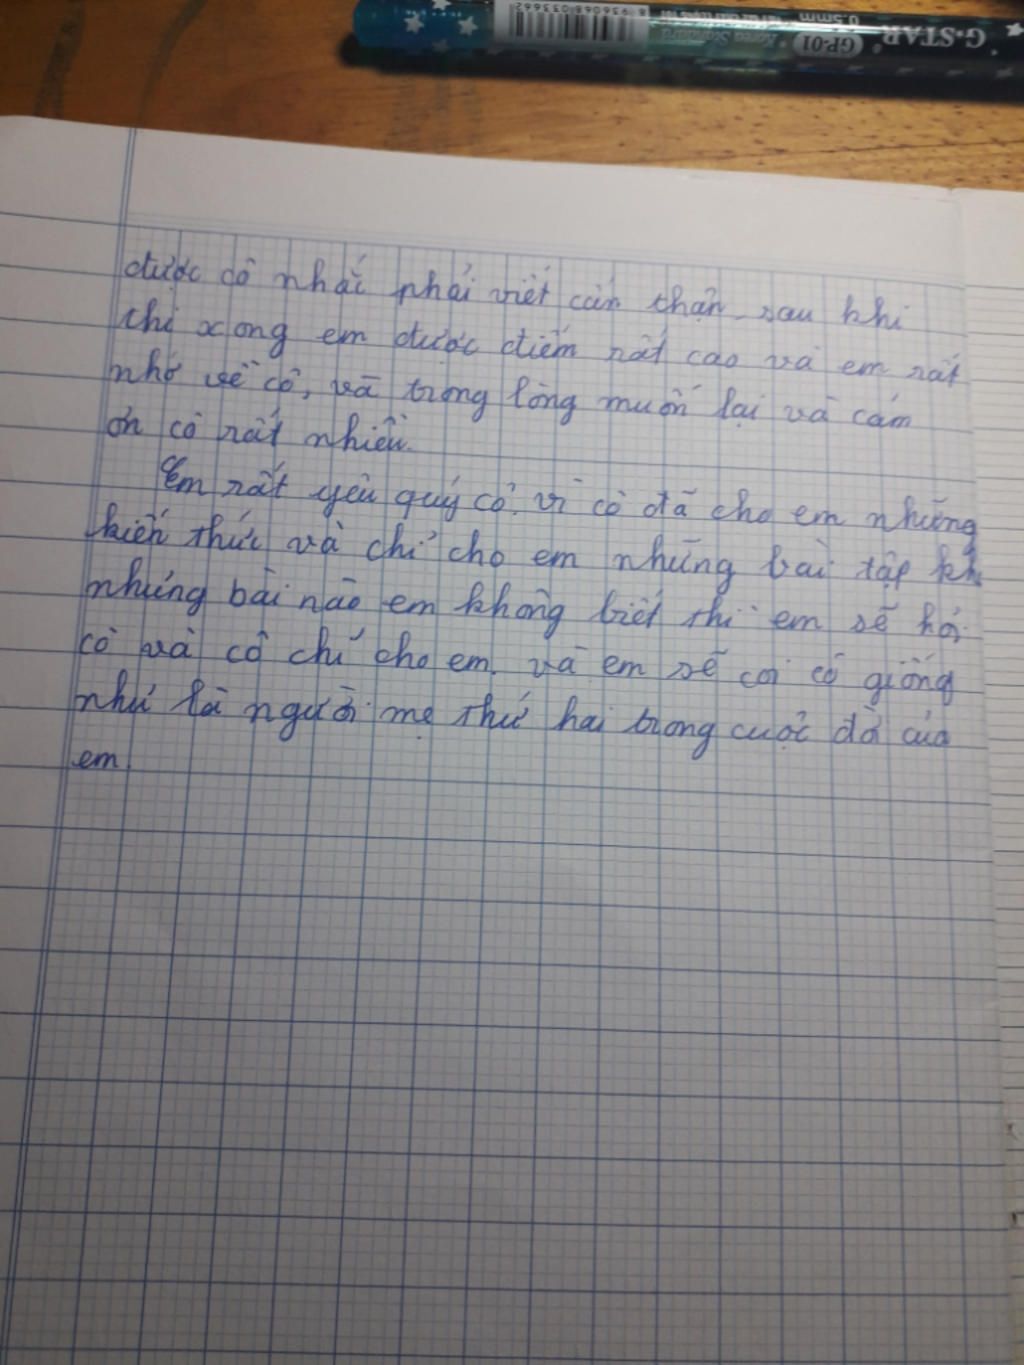 G-STAR
GP-01 Korea Standard
0.5mm
8 936068 033662
được cô nhắc phải viết cẩn thận. sau khi
thi xong em được điểm rất cao và em rất
nhớ về cô, và trong lòng muốn lại và cám
ơn cô rất nhiều.
Em rất yêu quý cô. vì cô đã cho em những
kiến thức và chỉ cho em những bài tập
những bài nào em không biết thì em sẽ hỏi
cô và cô chỉ cho em. và em sẽ coi cô giống
như là người mẹ thứ hai trong cuộc đời của
em.